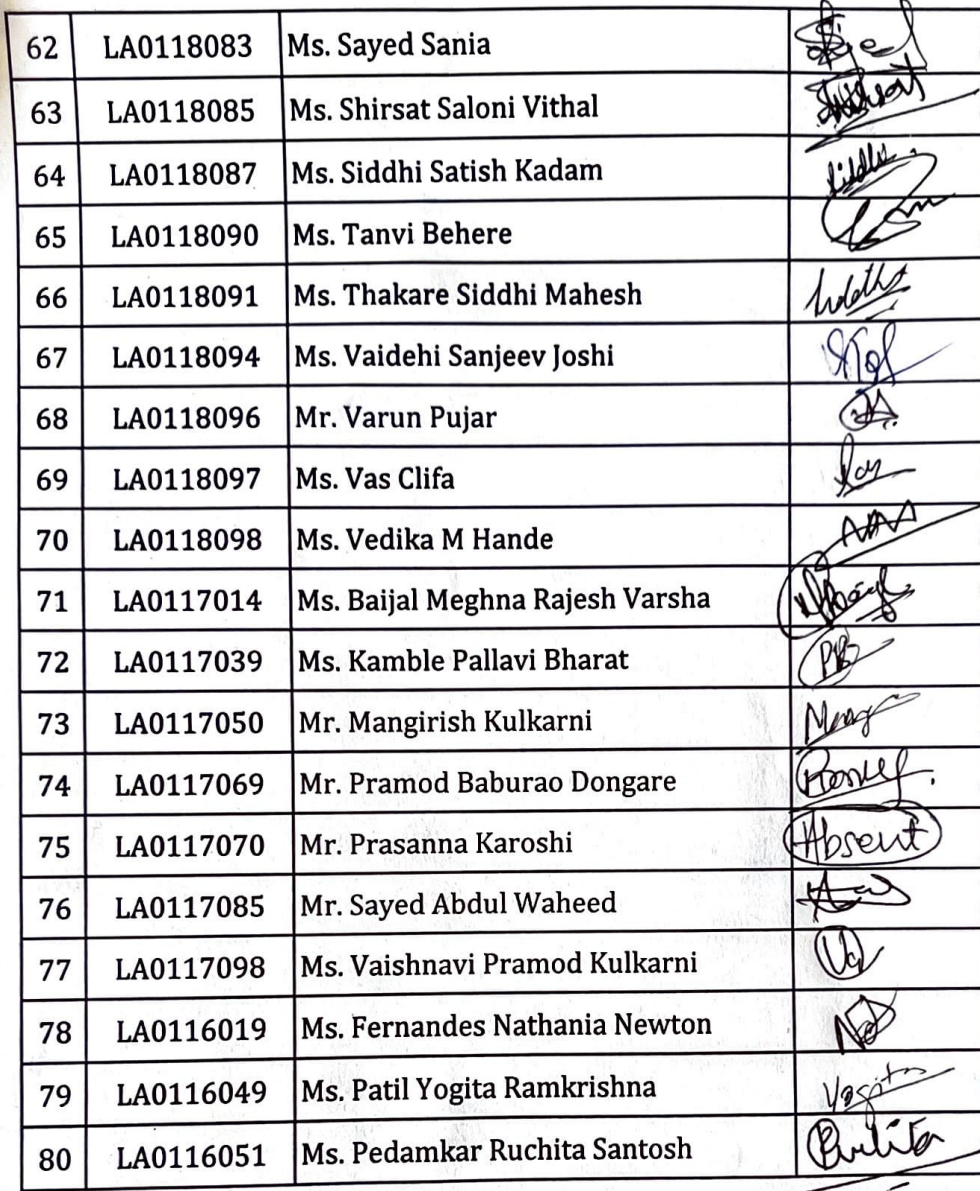 62 LA0118083 Ms. Sayed Sania
63 LA0118085 Ms. Shirsat Saloni Vithal
64 LA0118087 Ms. Siddhi Satish Kadam
65 LA0118090 Ms. Tanvi Behere
66 LA0118091 Ms. Thakare Siddhi Mahesh
67 LA0118094 Ms. Vaidehi Sanjeev Joshi
68 LA0118096 Mr. Varun Pujar
69 LA0118097 Ms. Vas Clifa
70 LA0118098 Ms. Vedika M Hande
71 LA0117014 Ms. Baijal Meghna Rajesh Varsha
72 LA0117039 Ms. Kamble Pallavi Bharat
73 LA0117050 Mr. Mangirish Kulkarni
74 LA0117069 Mr. Pramod Baburao Dongare
75 LA0117070 Mr. Prasanna Karoshi Absent
76 LA0117085 Mr. Sayed Abdul Waheed
77 LA0117098 Ms. Vaishnavi Pramod Kulkarni
78 LA0116019 Ms. Fernandes Nathania Newton
79 LA0116049 Ms. Patil Yogita Ramkrishna Yogita
80 LA0116051 Ms. Pedamkar Ruchita Santosh